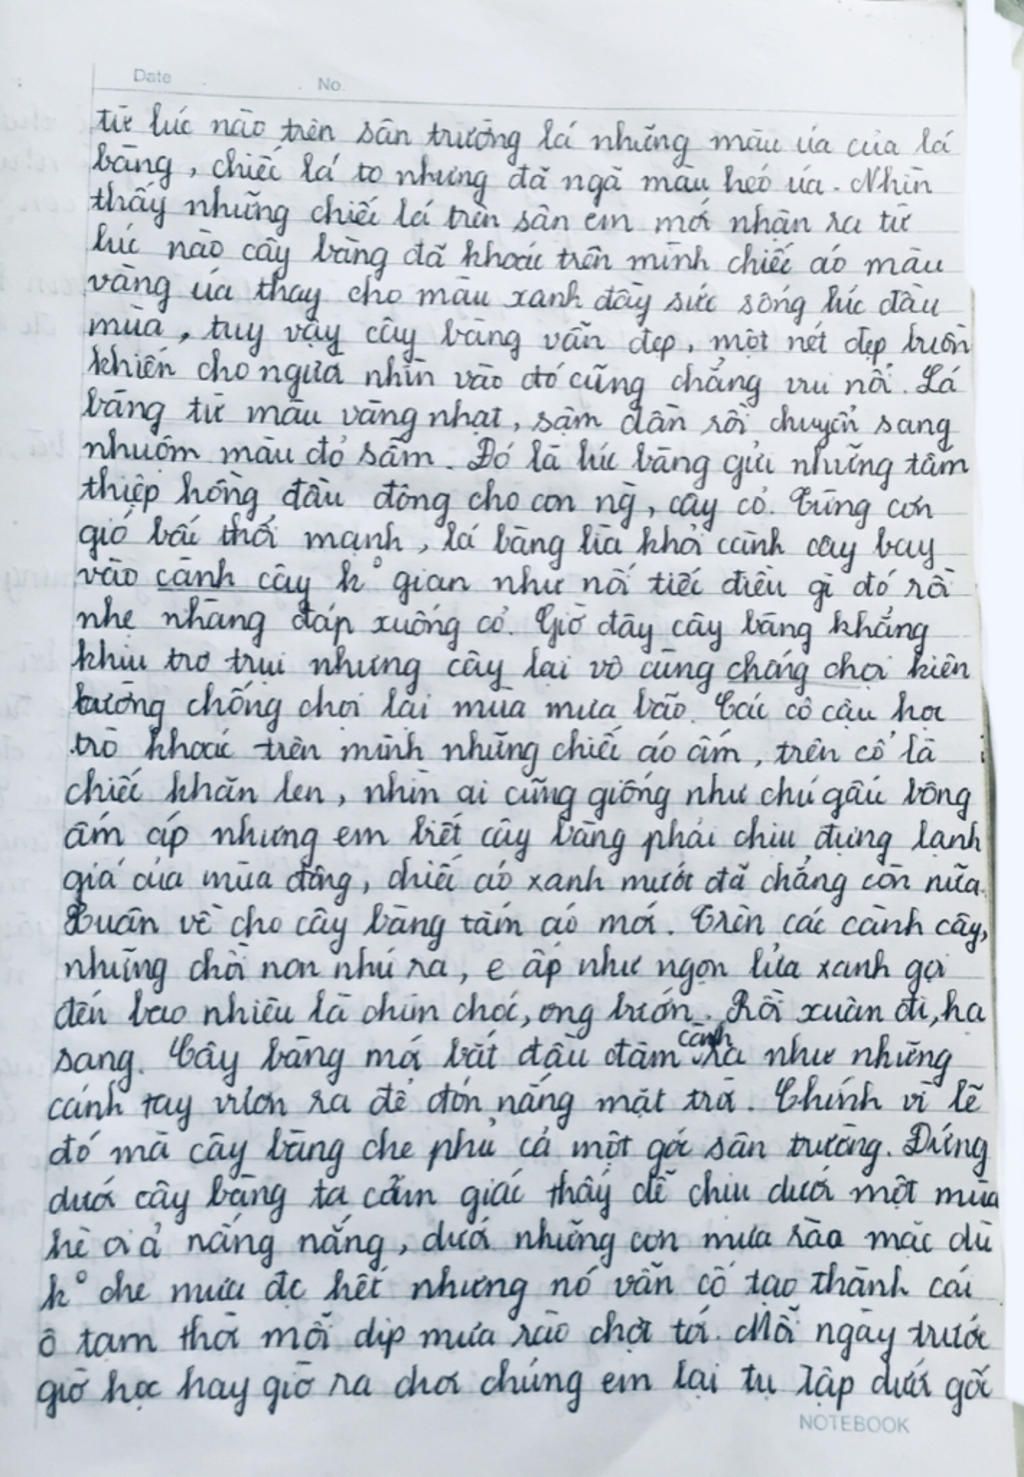 Date No.
từ lúc nào trên sân trường lá những màu úa của lá
bàng, chiếc lá to nhưng đã ngả màu héo úa. Nhìn
thấy những chiếc lá trên sân em mới nhận ra từ
lúc nào cây bàng đã khoác trên mình chiếc áo màu
vàng úa thay cho màu xanh đầy sức sống lúc đầu
mùa, tuy vậy cây bàng vẫn đẹp, một nét đẹp buồn
khiến cho người nhìn vào đó cũng chẳng vui nổi. Lá
bàng từ màu vàng nhạt, sậm dần rồi chuyển sang
nhuốm màu đỏ sẫm. Đó là lúc bàng gửi những tấm
thiệp hồng đầu đông cho con ng̀, cây cỏ. Từng cơn
gió bấc thổi mạnh, lá bàng lìa khỏi cành cây bay
vào cành cây k° gian như nối tiếc điều gì đó rồi
nhẹ nhàng đáp xuống cỏ. Giờ đây cây bàng khẳng
khiu trơ trụi nhưng cây lại vô cùng chống chọi kiên
cường chống chọi lại mùa mưa bão. Các cô cậu học
trò khoác trên mình những chiếc áo ấm, trên cổ là
chiếc khăn len, nhìn ai cũng giống như chú gấu bông
ấm áp nhưng em biết cây bàng phải chịu đựng lạnh
giá của mùa đông, chiếc áo xanh mướt đã chẳng còn nữa.
Xuân về cho cây bàng tấm áo mới. Trên các cành cây,
những chồi non nhú ra, e ấp như ngọn lửa xanh gọi
đến bao nhiêu là chim chóc, ong bướm. Rồi xuân đi, hạ
sang. Cây bàng mới bắt đầu đâm cành ra như những
cánh tay vươn ra để đón nắng mặt trời. Chính vì lẽ
đó mà cây bàng che phủ cả một góc sân trường. Đứng
dưới cây bàng ta cảm giác thấy dễ chịu dưới một mùa
hè oi ả nắng nắng, dưới những cơn mưa rào mặc dù
k° che mưa đc hết nhưng nó vẫn cố tạo thành cái
ô tạm thời mỗi dịp mưa rào chợt tới. Mỗi ngày trước
giờ học hay giờ ra chơi chúng em lại tụ tập dưới gốc
NOTEBOOK